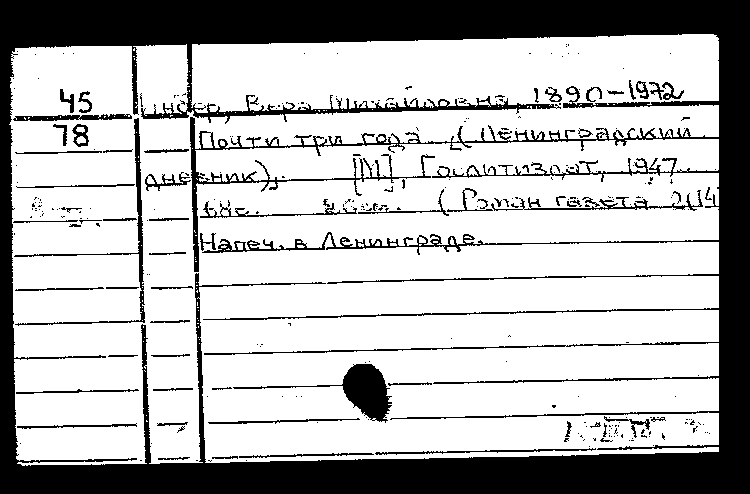 45 Инбер, Вера Михайловна, 1890-1972
78 Почти три года. (Ленинградский
дневник). [М], Гослитиздат, 1947.
68с. 26см. (Роман газета 2(14
Напеч. в Ленинграде.